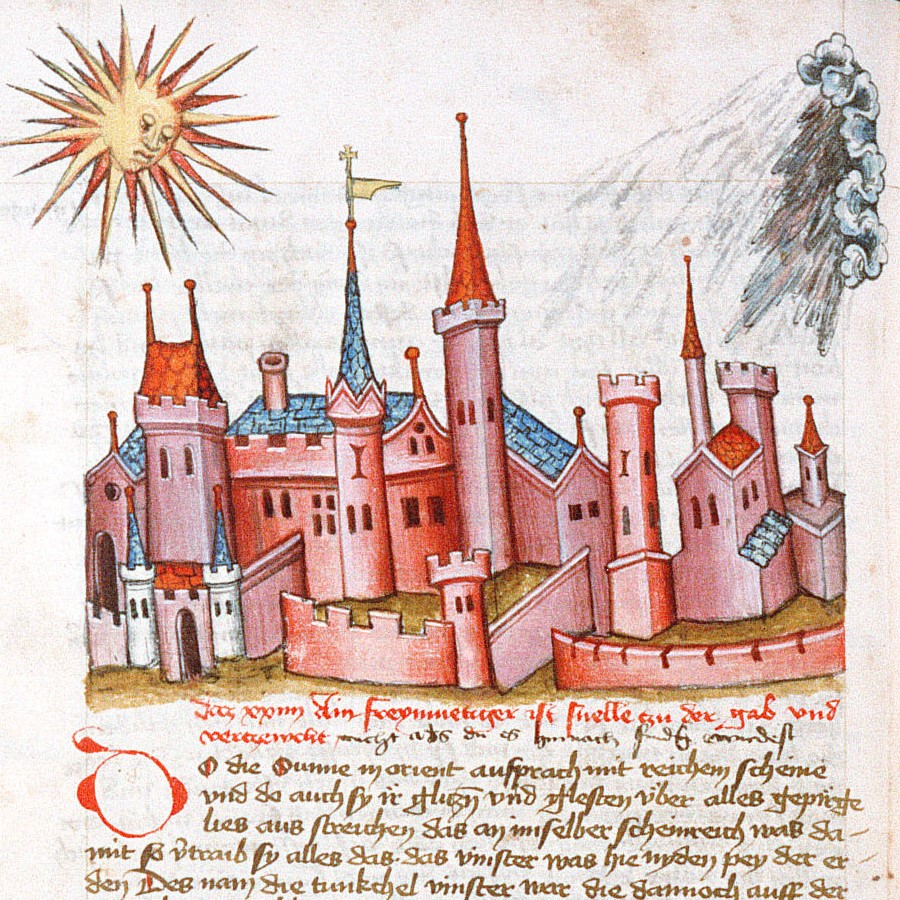 Daz xxiiii Ain freymuetiger ist snelle tzu der gab vnd
vertzeicht nicht als du es hernach
O die Sunne in orient aufsprach mit reichem scheine
vnd do auch sy ir glitzn vnd glesten vber alles gepirge
lies aus streichen das an im selber scheinreich was da-
mit so v̈traib sy alles das. das vinster was hie nyden pey der er
den Des nam die tunkchel vinster war die dannoch auff der